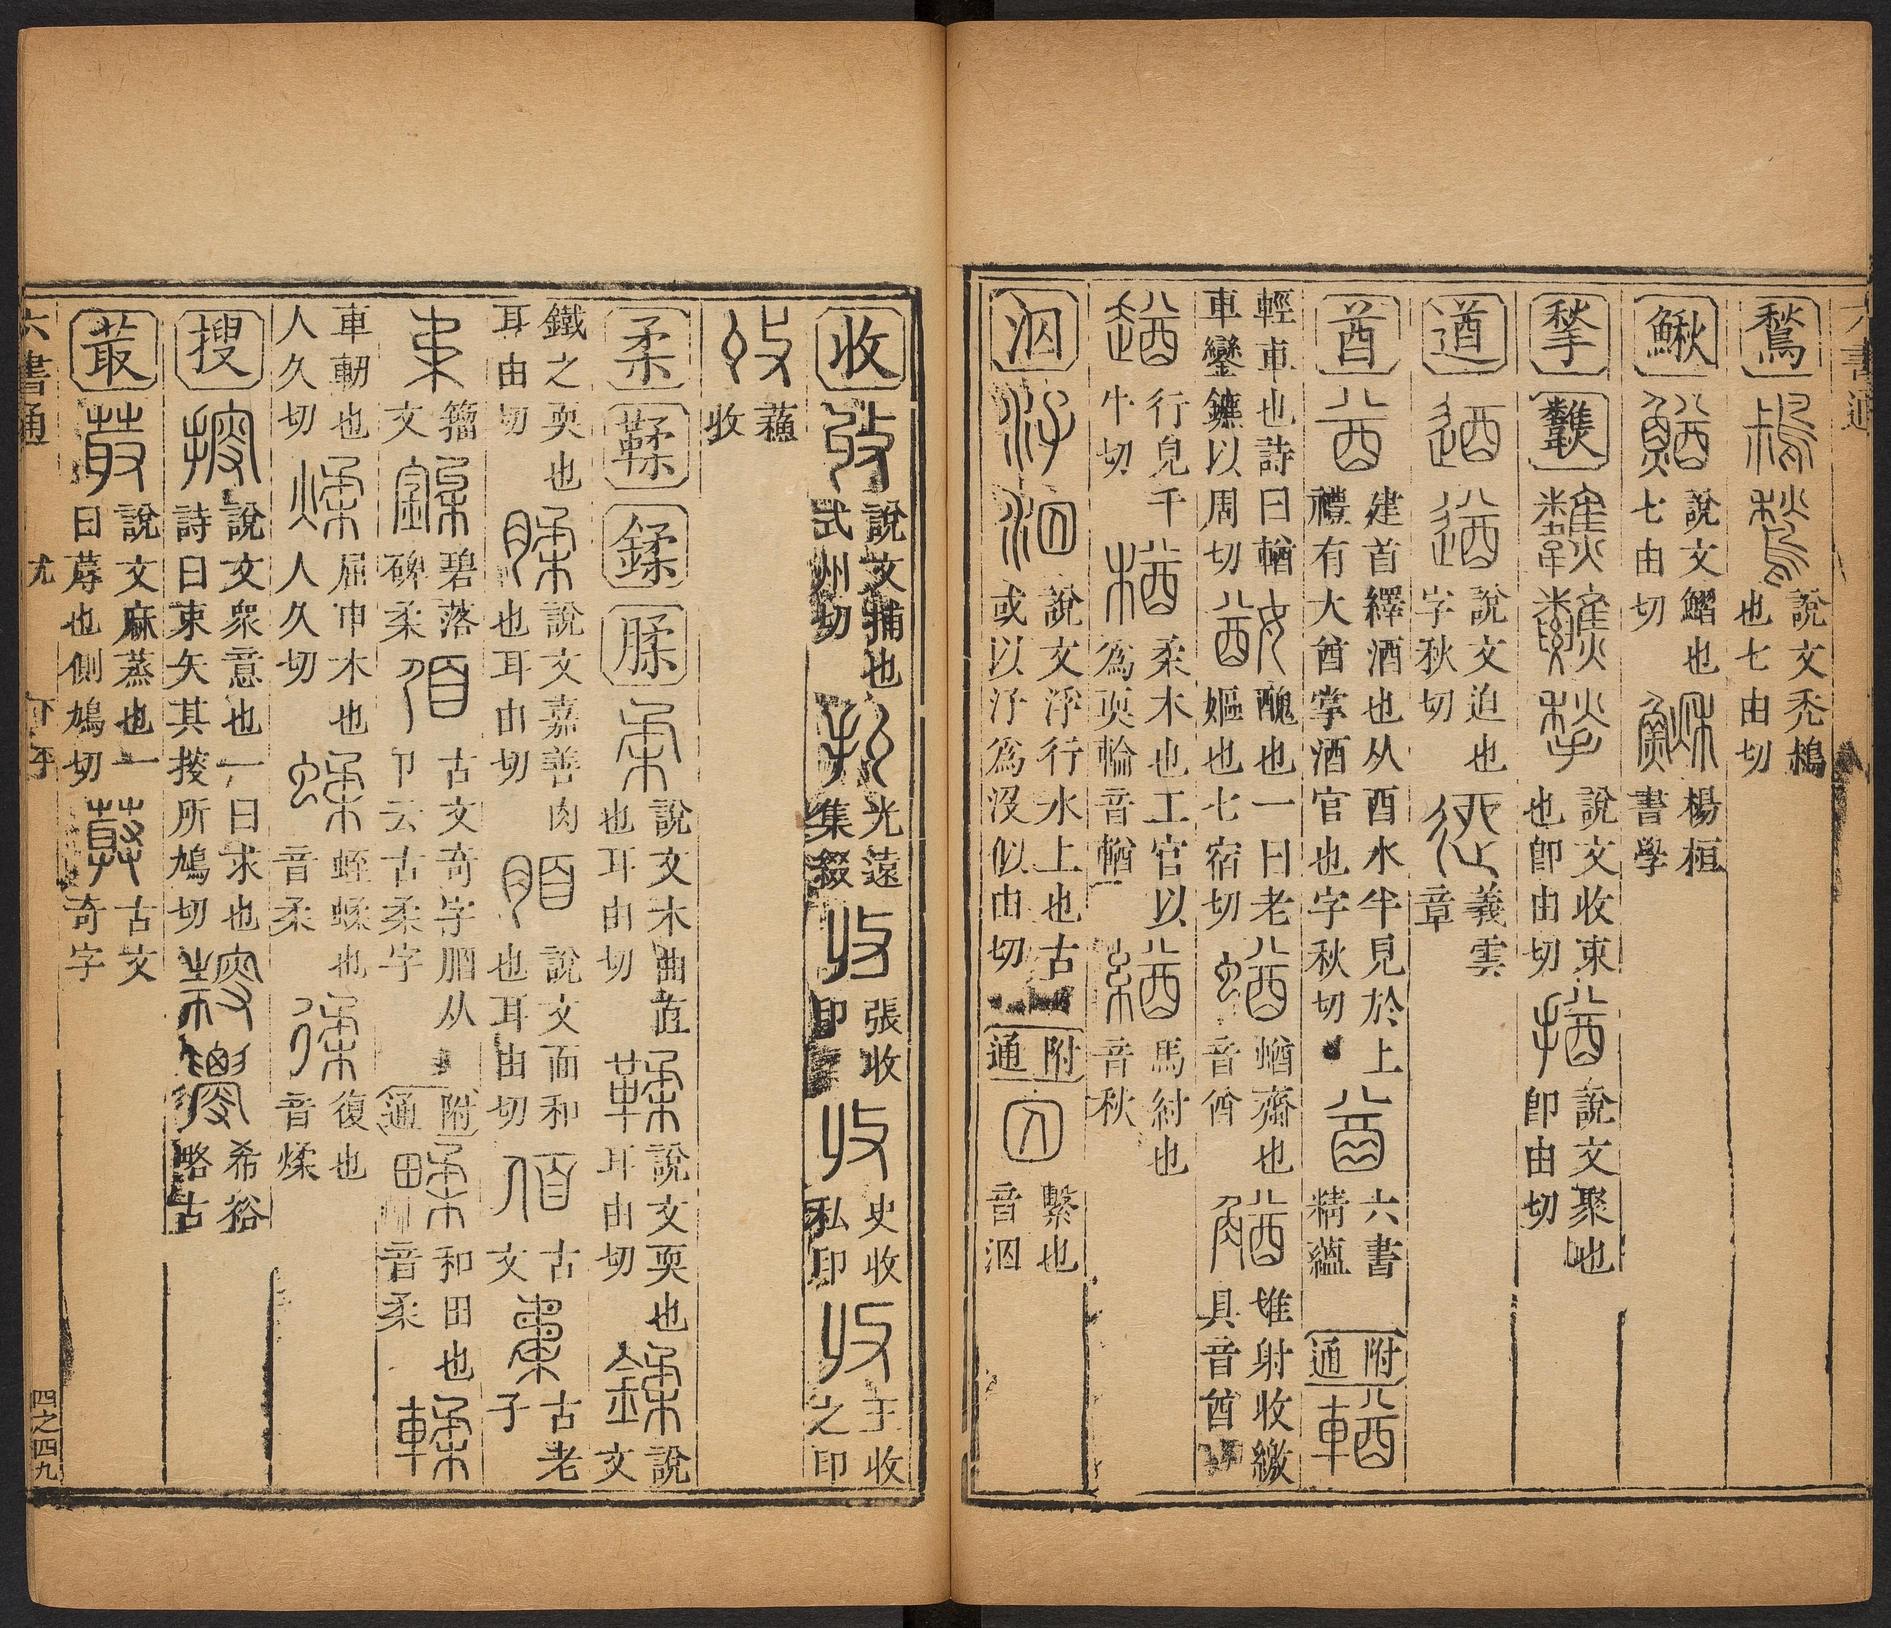 六書通
鶖 說文禿鶖也七由切
鰍 說文鰼也七由切 楊桓書學
揫 𪛁 說文收束也卽由切 說文聚也卽由切
遒 說文迫也字秋切 義雲章
酋 建首繹酒也从酉水半見於上禮有大酋掌酒官也字秋切 六書精蘊 附通
輕車也詩曰輶車鑾鑣以周切 醜也一曰老嫗也七宿切 蝤齏也音酋 雉射收繳具音酋
行皃千牛切 柔木也工官以爲耎輪音輶 馬紂也音秋
汓 泅 說文浮行水上也古或以汓爲沒似由切 附通 繫也音泅
收 說文捕也式州切 光遠集綴 張收印 史收私印 王收之印
收 蘓收
柔 鞣 鍒 腬 說文木曲直也耳由切 說文耎也耳由切 說文
鐵之耎也耳由切 說文嘉善肉也耳由切 說文面和也耳由切 古文 古老子
籀文 碧落碑柔 古文奇字𦣻从卩云古柔字 附通 和田也音柔
車軔也人久切 屈申木也人久切 蛭蝚也音柔 復也音煣
搜 說文衆意也一曰求也詩曰束矢其搜所鳩切 希裕略古
菆 說文麻蒸也一曰蓐也側鳩切 古文奇字
六書通 尤 下平 四之四九